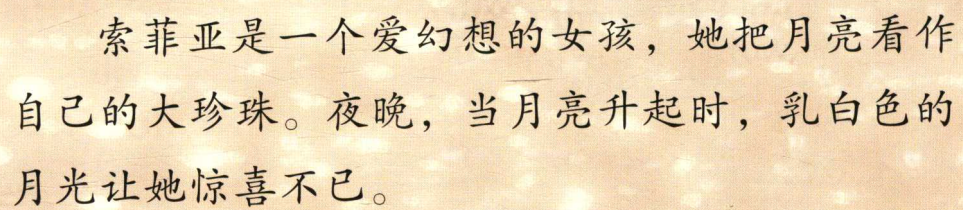 索菲亚是一个爱幻想的女孩，她把月亮看作
自己的大珍珠。夜晚，当月亮升起时，乳白色的
月光让她惊喜不已。